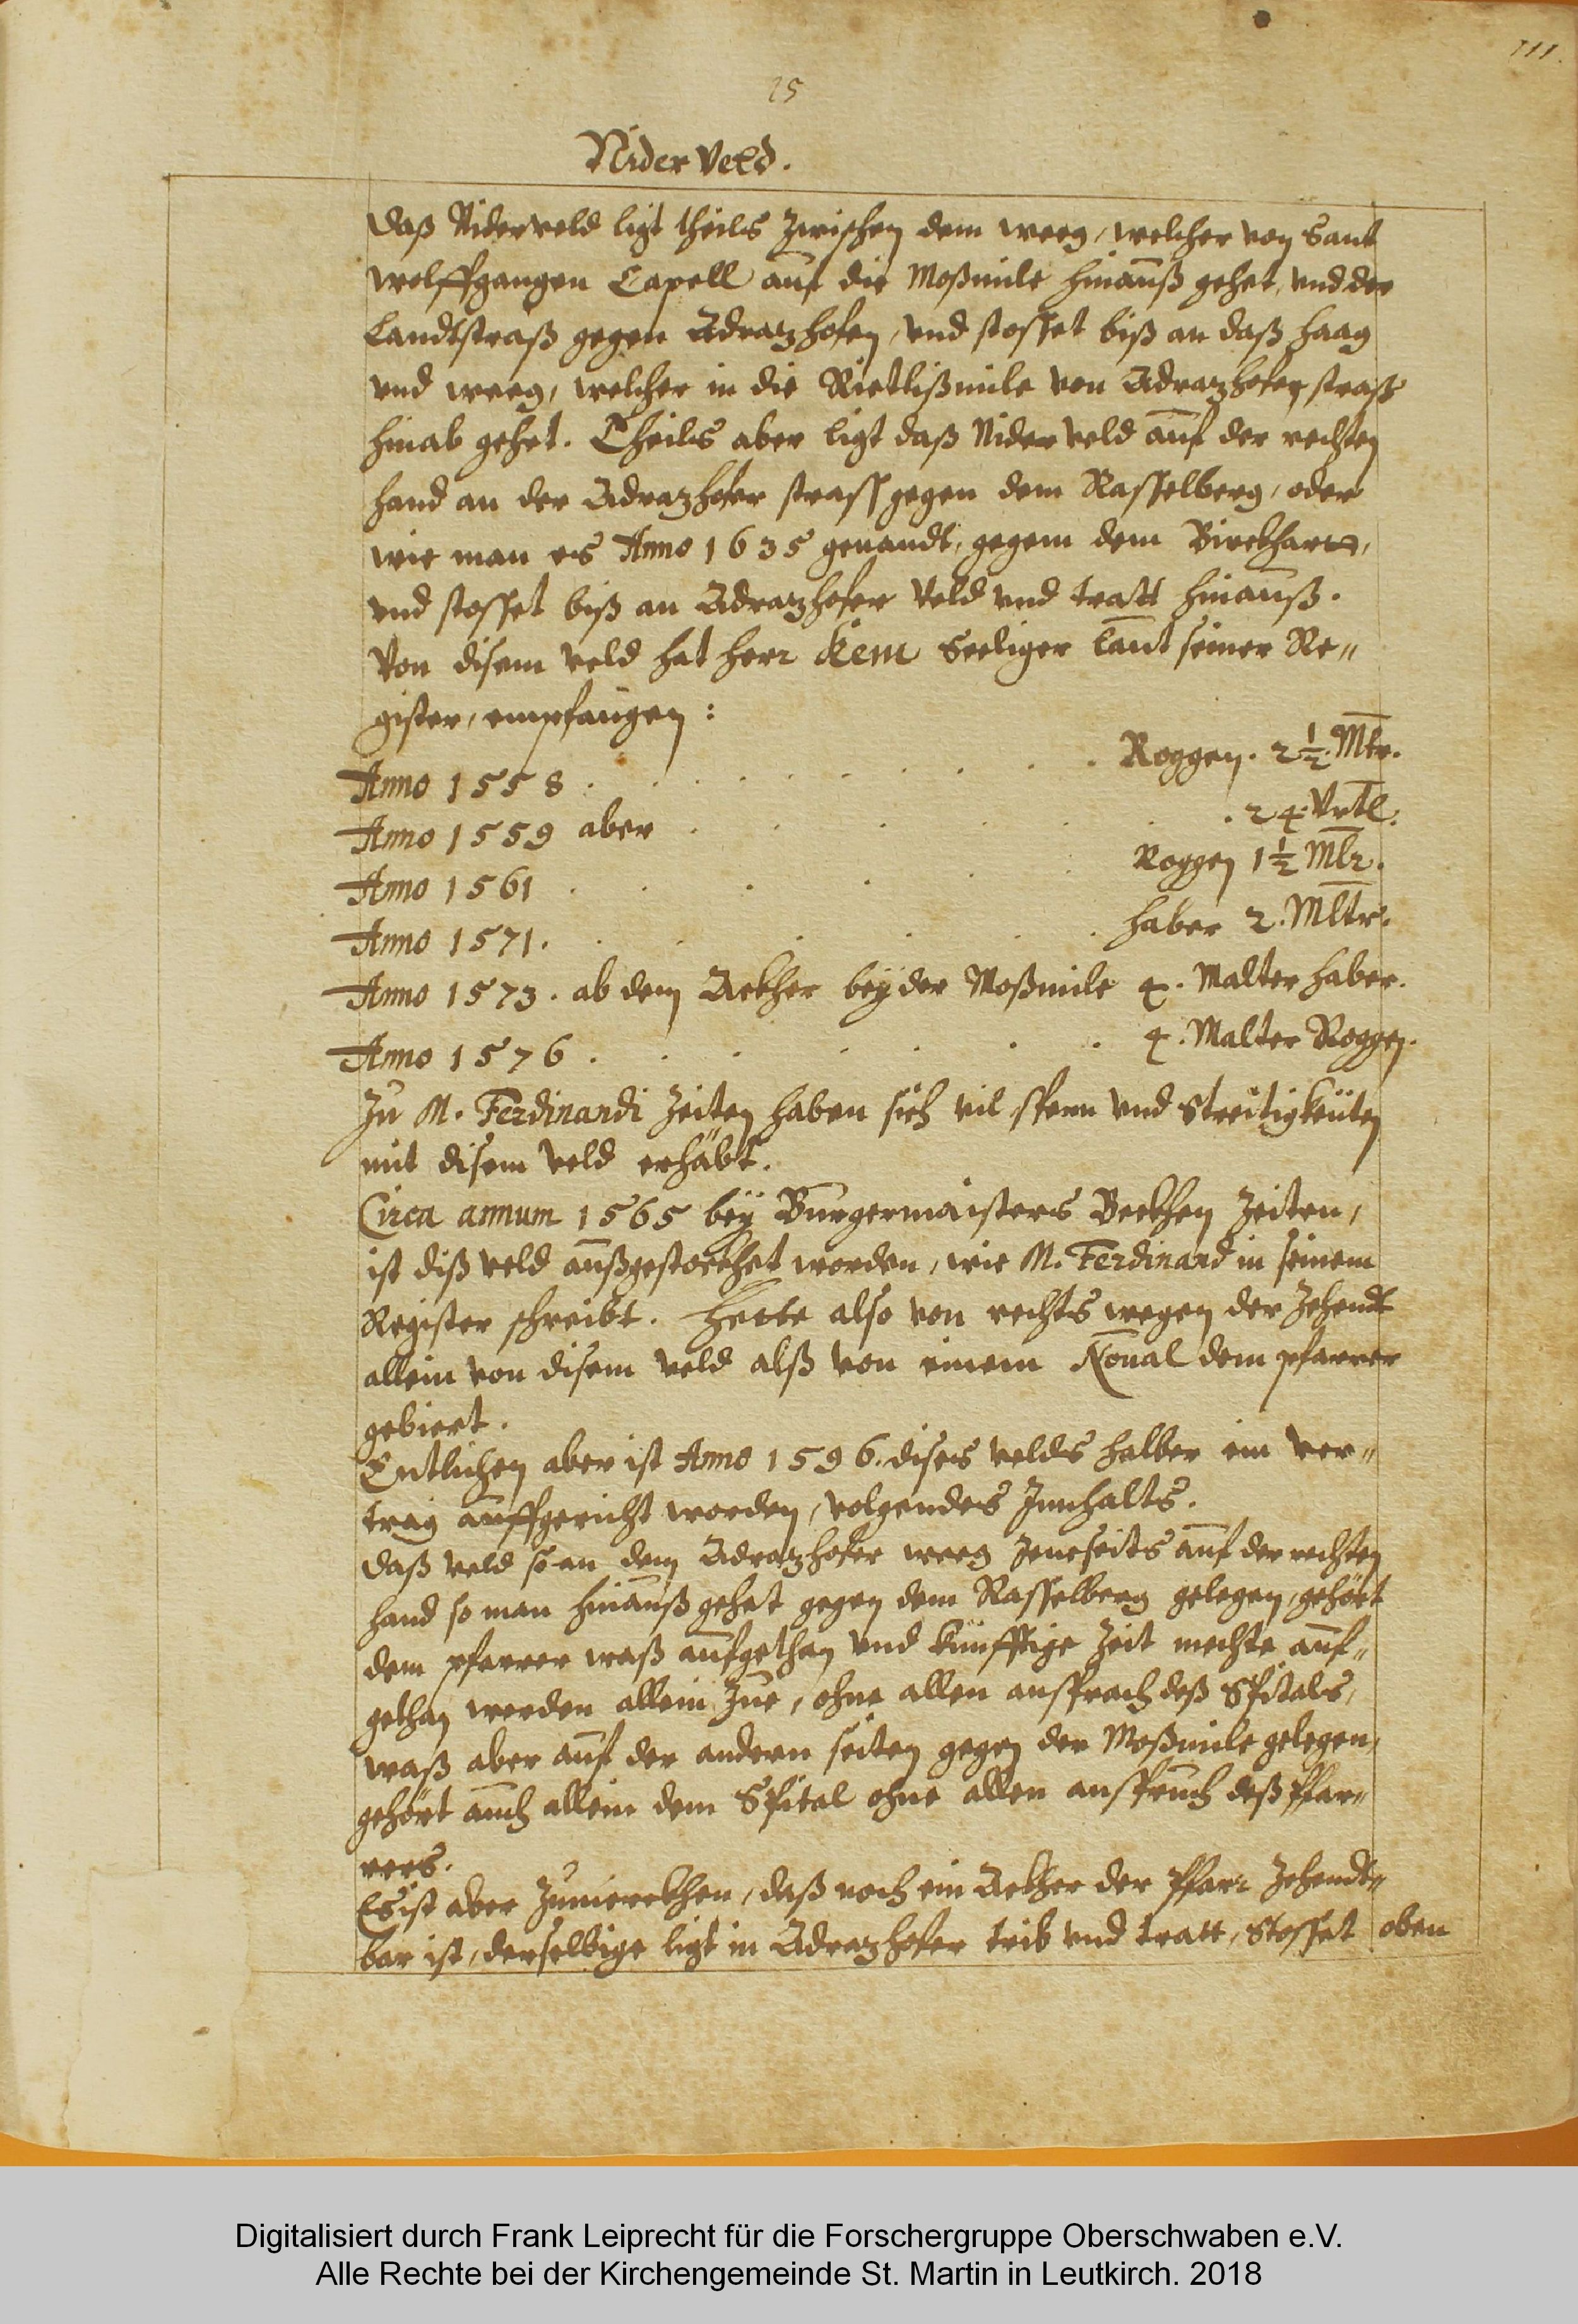 111.
25
Nider Veld.
Daß Niderveld ligt theils zwischen dem weeg, welcher von Sant
Wolffgangen Capell auf die Moßmile hinauß gehet, und der
Landtstraß gegen Adrazhofen, und stosset biß an daß Haag
und weeg, welcher in die Rietlißmile von Adrazhofer straß
hinab gehet. Theils aber ligt daß Nider Veld auf der rechten
hand an der Adrazhofer strass gegen dem Rasselberg, oder
wie man es Anno 1635 genandt, gegem dem Birckhart,
und stosset biß an Adrazhofer Veld und tratt hinauß.
Von disem veld hat herr Kem Seeliger laut seiner Re„
gister, empfangen:
Anno 1558 . . . . . . . . . Roggen. 2 1/2. Mtr.
Anno 1559 aber . . . . . . 24 Vrtl.
Anno 1561 . . . . . . Roggen 1 1/2 Mlr.
Anno 1571. . . . . . . haber 2. Mltr.
Anno 1573. ab dem Ackher bey der Moßmile 4. Malter haber.
Anno 1576 . . . . . . . 4. Malter Roggen.
Zu M. Ferdinandi Zeiten haben sich vil spenn und Streitigkeiten
mit disem Veld erhäbt.
Circa annum 1565 bey Burgermaisters Beckhen Zeiten,
ist diß veld außgestockhet worden, wie M. Ferdinand in seinem
Register schreibt. Hette also von rechts wegen der Zehendt
allein von disem veld alß von einem Noual dem pfarrer
gebiert.
Entlichen aber ist Anno 1596. dises velds halber ein ver„
trag auffgericht worden, volgendes Innhalts.
Daß veld so an dem Adrazhofer weeg Jenseits auf der rechten
hand so man hinauß gehet gegen dem Rasselberg gelegen, gehört
dem pfarrer waß aufgethan und künfftige Zeit mechte auf„
gethan werden allein Zue, ohne allen ansprach deß Spitals,
waß aber auf der andern seiten gegen der Moßmile gelegen,
gehört auch allein dem Spital ohne allen anspruch deß Pfar„
rers.
Es ist aber Zumerckhen, daß noch ein Ackher der Pfarr Zehendt„
bar ist, derselbige ligt in Adrazhofer trib und tratt, Stosset oben
Digitalisiert durch Frank Leiprecht für die Forschergruppe Oberschwaben e.V.
Alle Rechte bei der Kirchengemeinde St. Martin in Leutkirch. 2018